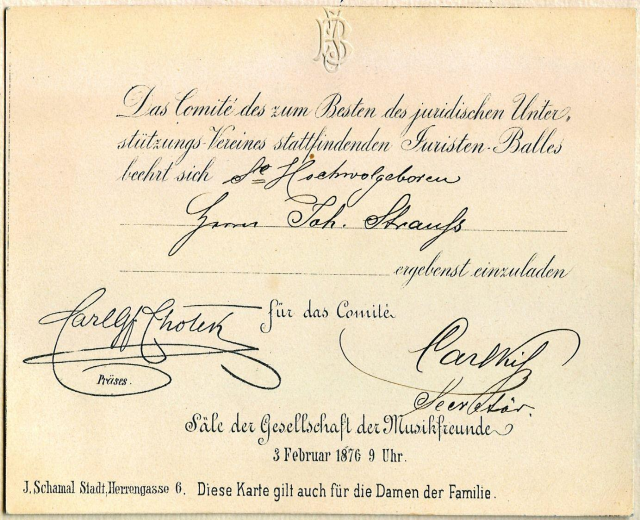 JB
Das Comité des zum Besten des juridischen Unter-
stützungs-Vereines stattfindenden Juristen-Balles
beehrt sich Se Hochwolgeboren
Herrn Joh. Strauss
ergebenst einzuladen
für das Comité
Carl Gf Chotek
Präses.
Carl
Secretär.
Säle der Gesellschaft der Musikfreunde
3 Februar 1876 9 Uhr.
J. Schamal Stadt, Herrengasse 6. Diese Karte gilt auch für die Damen der Familie.